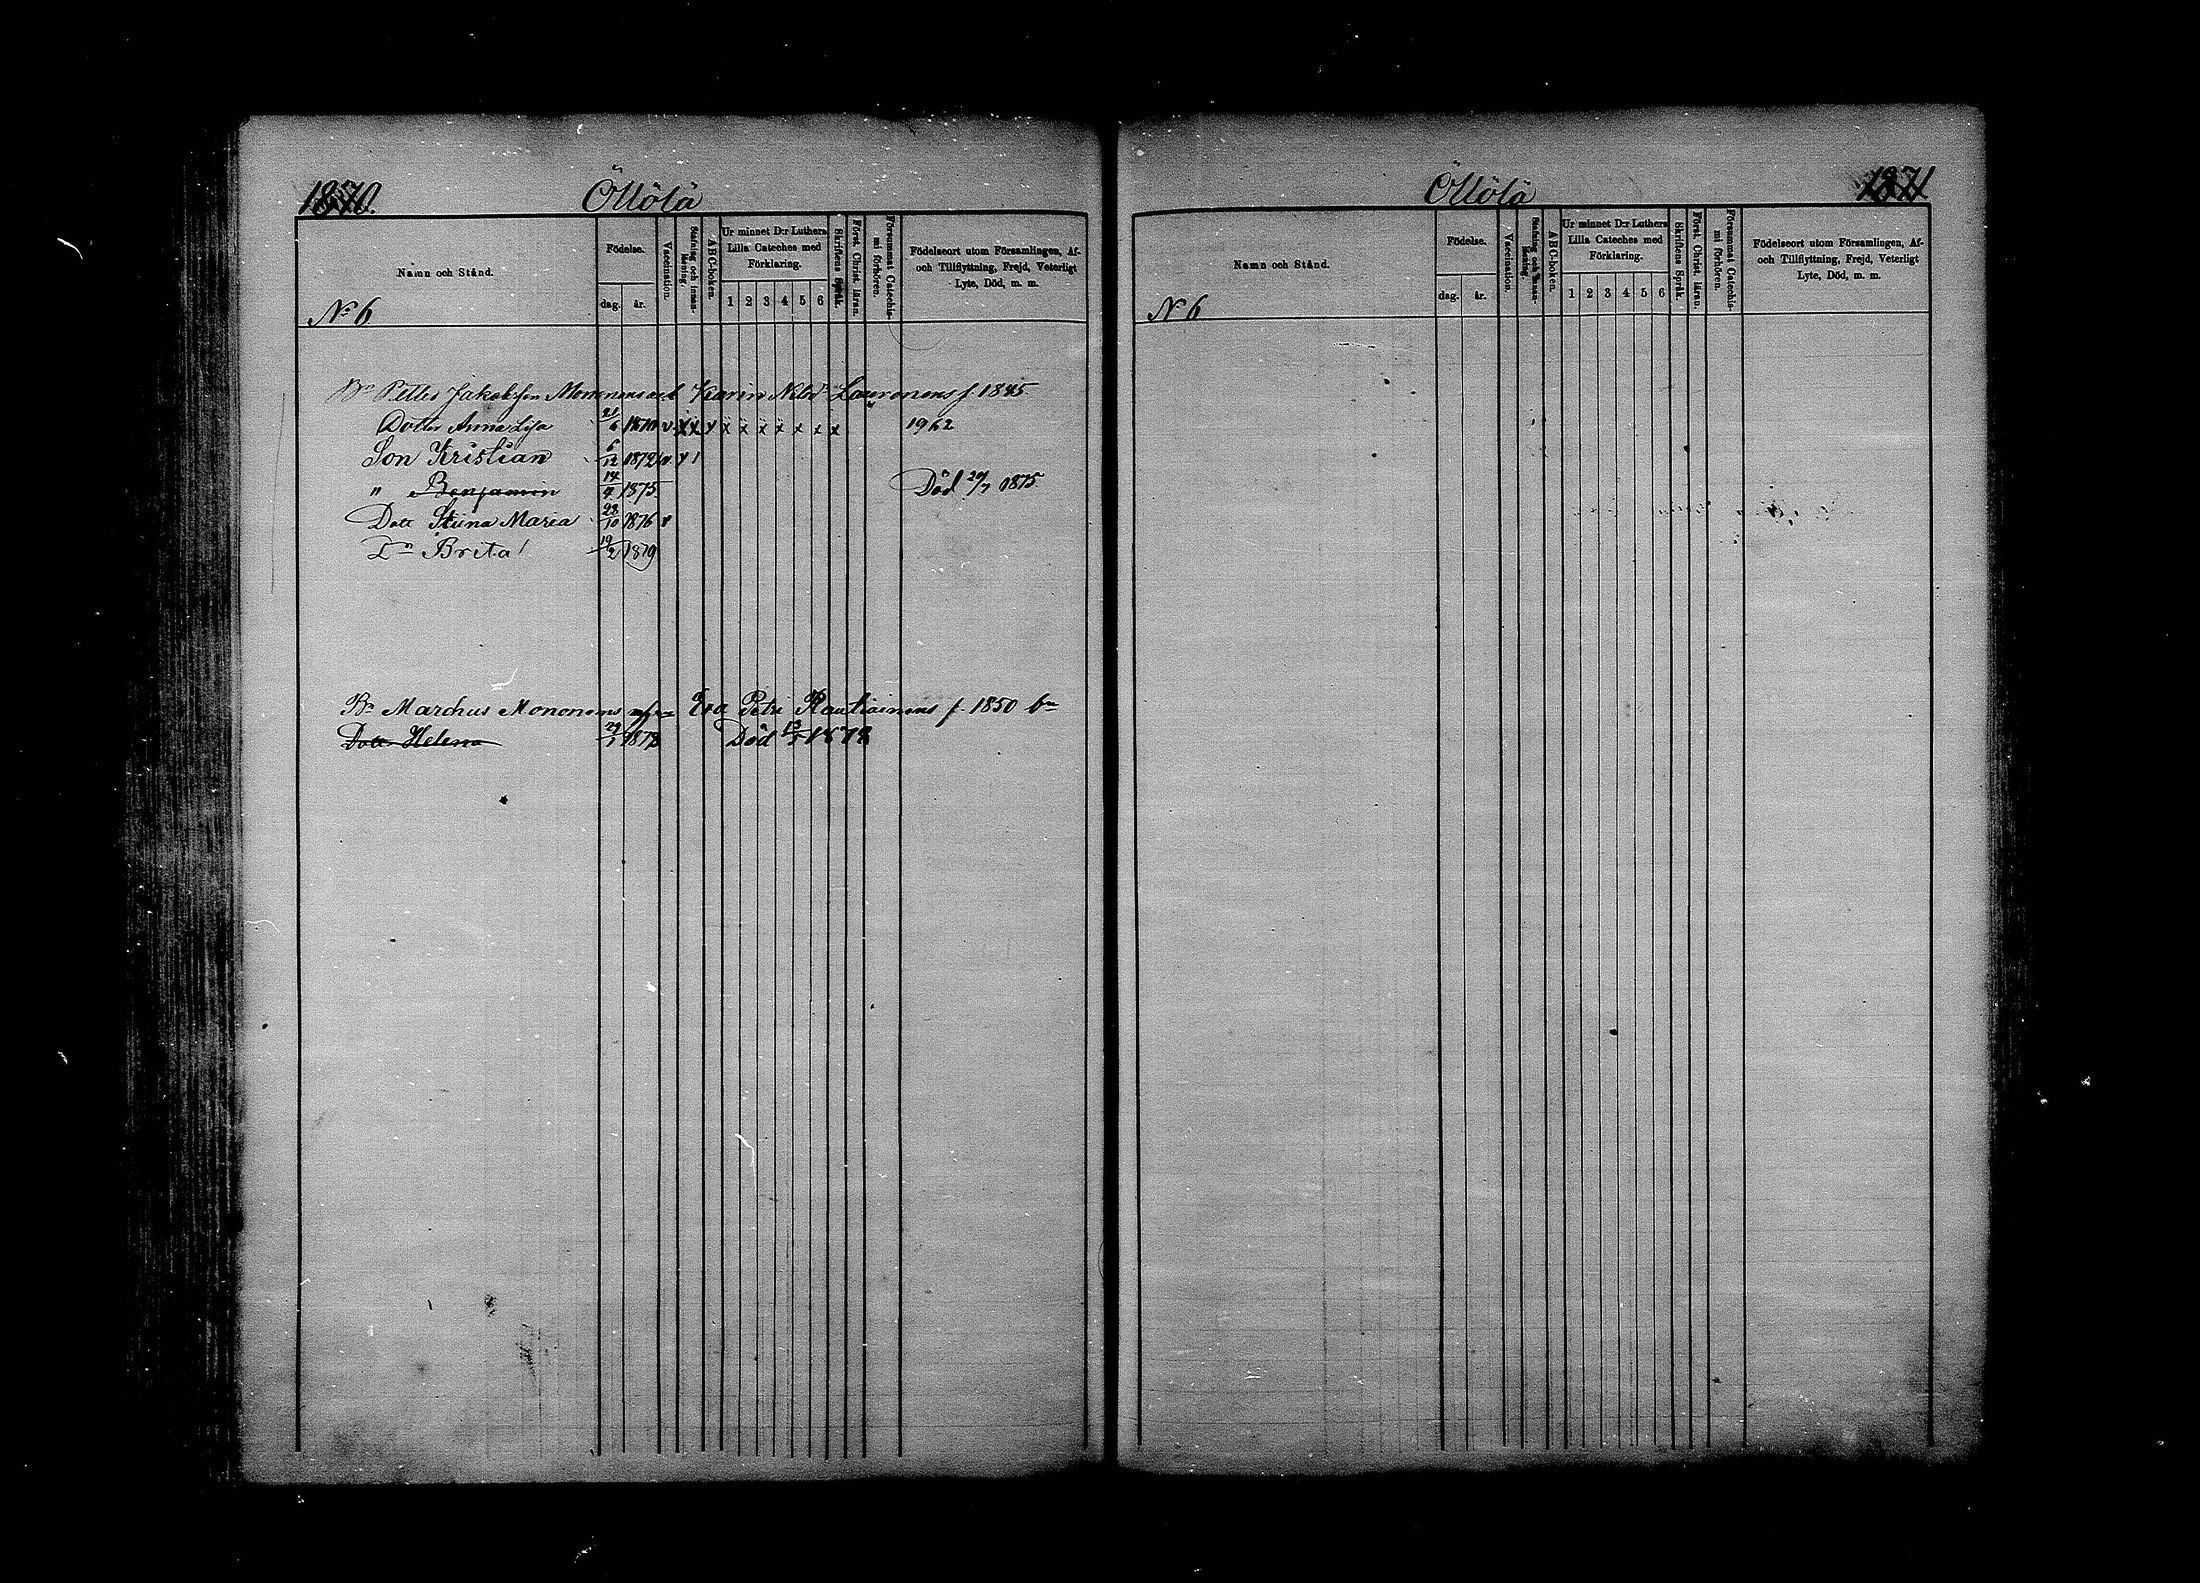 1870.
Öllölä
Namn och Stånd.
Nº 6
Födelse.
dag.
år.
Vaccination.
Stafning och innan-
läsning.
ABC-boken.
Ur minnet D:r Luthers
Lilla Cateches med
Förklaring.
1 2 3 4 5 6
Skriftens Språk.
Först. Christ. läran.
Försummat Catechis-
mi förhören.
Födelseort utom Församlingen, Af-
och Tillflyttning, Frejd, Veterligt
Lyte, Död, m. m.
Bn Petter Jakobsson Mononens och Karin Lauronens f. 1845
Dotter Anna Lisa 21/6 1870 v x x x x x x x x x x 1962
Son Kristian 6/12 1872 v
" Benjamin 14/4 1875 Död 20/7 1875
Dott Stina Maria 28/10 1876 v
Dn Brita 19/2 1879
Bn Marchus Mononens Eva Petri Rautiainens f. 1850 bn
Dott Helena 29/1 1878 Död 13/3 1878
Öllölä
1871
Namn och Stånd.
Nº 6
Födelse.
dag.
år.
Vaccination.
Stafning och innan-
läsning.
ABC-boken.
Ur minnet D:r Luthers
Lilla Cateches med
Förklaring.
1 2 3 4 5 6
Skriftens Språk.
Först. Christ. läran.
Försummat Catechis-
mi förhören.
Födelseort utom Församlingen, Af-
och Tillflyttning, Frejd, Veterligt
Lyte, Död, m. m.